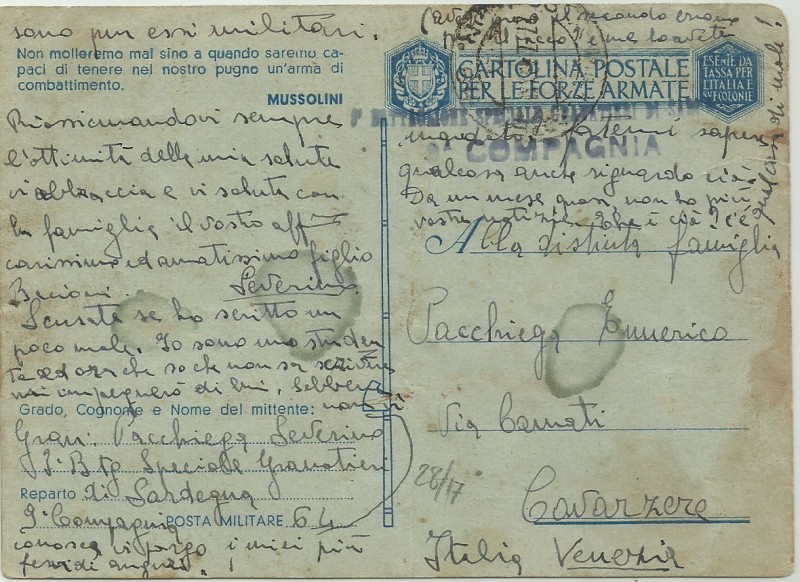 sono pur essi militari.
Non molleremo mai sino a quando saremo ca-
paci di tenere nel nostro pugno un'arma di
combattimento.
MUSSOLINI
Riassicurandovi sempre
l'ottimità della mia salute
vi abbraccia e vi saluta con
la famiglia il vostro aff.mo
carissimo ed amatissimo figlio
Bacioni. Severino
Scusate se ho scritto un
poco male. Io sono uno studen
te ed ora che so che non sa scrivere
mi impegnerò di lui, sebbene
Grado, Cognome e Nome del mittente: non vi
Gran. Pacchiega Severino
3° Btg Speciale Granatieri
Reparto di Sardegna
9° Compagnia POSTA MILITARE 64
conosca vi porgo i miei più
fervidi auguri.
il secondo
CARTOLINA POSTALE
PER LE FORZE ARMATE
ESENTE DA
TASSA PER
L'ITALIA E
SUE COLONIE
BATTAGLIONE SPECIALE GRANATIERI DI
COMPAGNIA
mandato, fatemi sapere
qualcosa anche riguardo ciò.
Da un mese quasi, non ho più
vostre notizie. Che è ciò? C'è
qualcosa di male!
Alla distinta famiglia
Pacchiega Emmerico
Via Carnati
28/17
Cavarzere
Italia Venezia